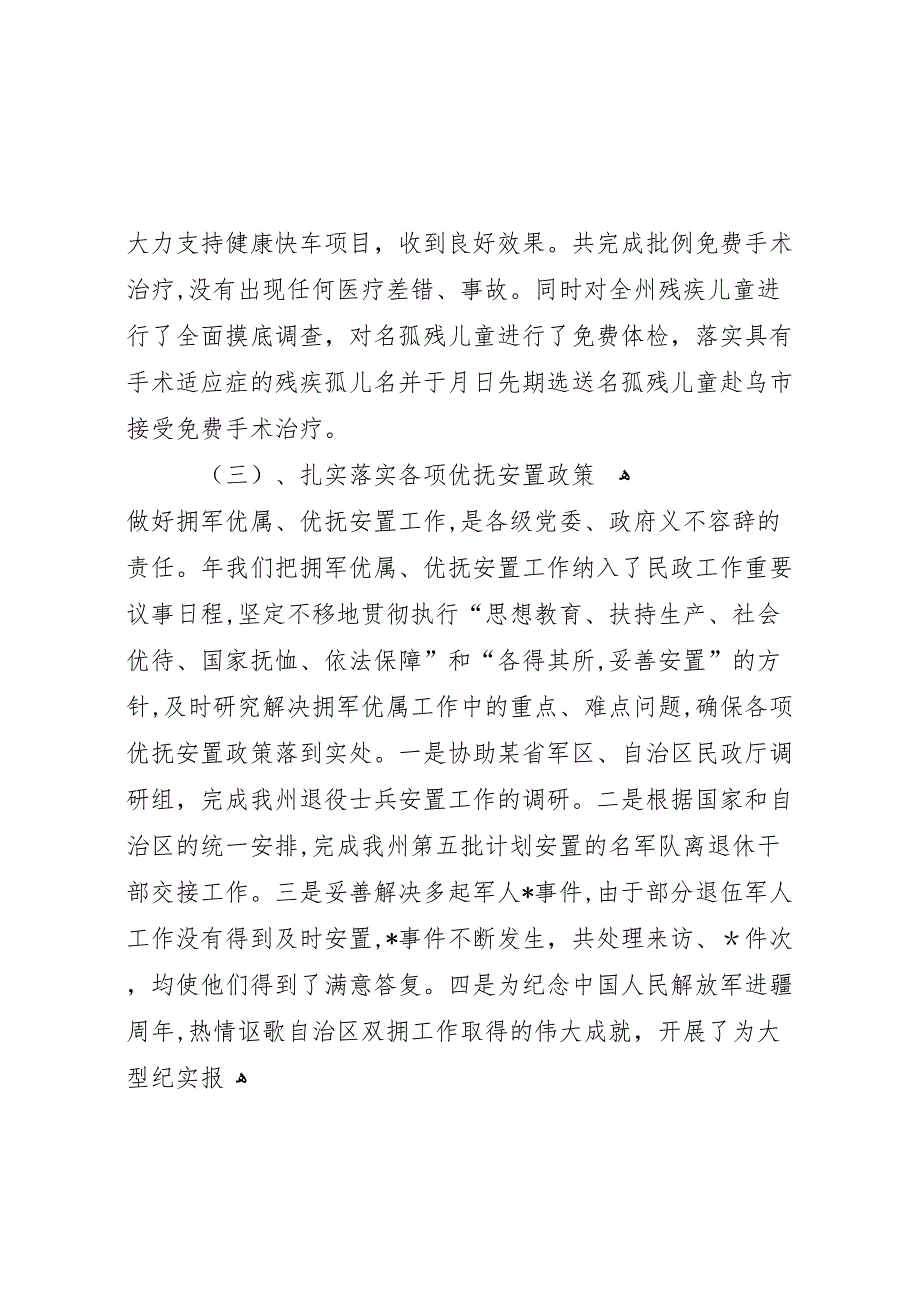 大力支持健康快车项目，收到良好效果。共完成批例免费手术
治疗,没有出现任何医疗差错、事故。同时对全州残疾儿童进
行了全面摸底调查，对名孤残儿童进行了免费体检，落实具有
手术适应症的残疾孤儿名并于月日先期选送名孤残儿童赴乌市
接受免费手术治疗。
（三）、扎实落实各项优抚安置政策 ﻫ
做好拥军优属、优抚安置工作,是各级党委、政府义不容辞的
责任。年我们把拥军优属、优抚安置工作纳入了民政工作重要
议事日程,坚定不移地贯彻执行“思想教育、扶持生产、社会
优待、国家抚恤、依法保障”和“各得其所,妥善安置”的方
针,及时研究解决拥军优属工作中的重点、难点问题,确保各项
优抚安置政策落到实处。一是协助某省军区、自治区民政厅调
研组，完成我州退役士兵安置工作的调研。二是根据国家和自
治区的统一安排,完成我州第五批计划安置的名军队离退休干
部交接工作。三是妥善解决多起军人*事件,由于部分退伍军人
工作没有得到及时安置,*事件不断发生，共处理来访、＊件次
，均使他们得到了满意答复。四是为纪念中国人民解放军进疆
周年,热情讴歌自治区双拥工作取得的伟大成就，开展了为大
型纪实报 ﻫ